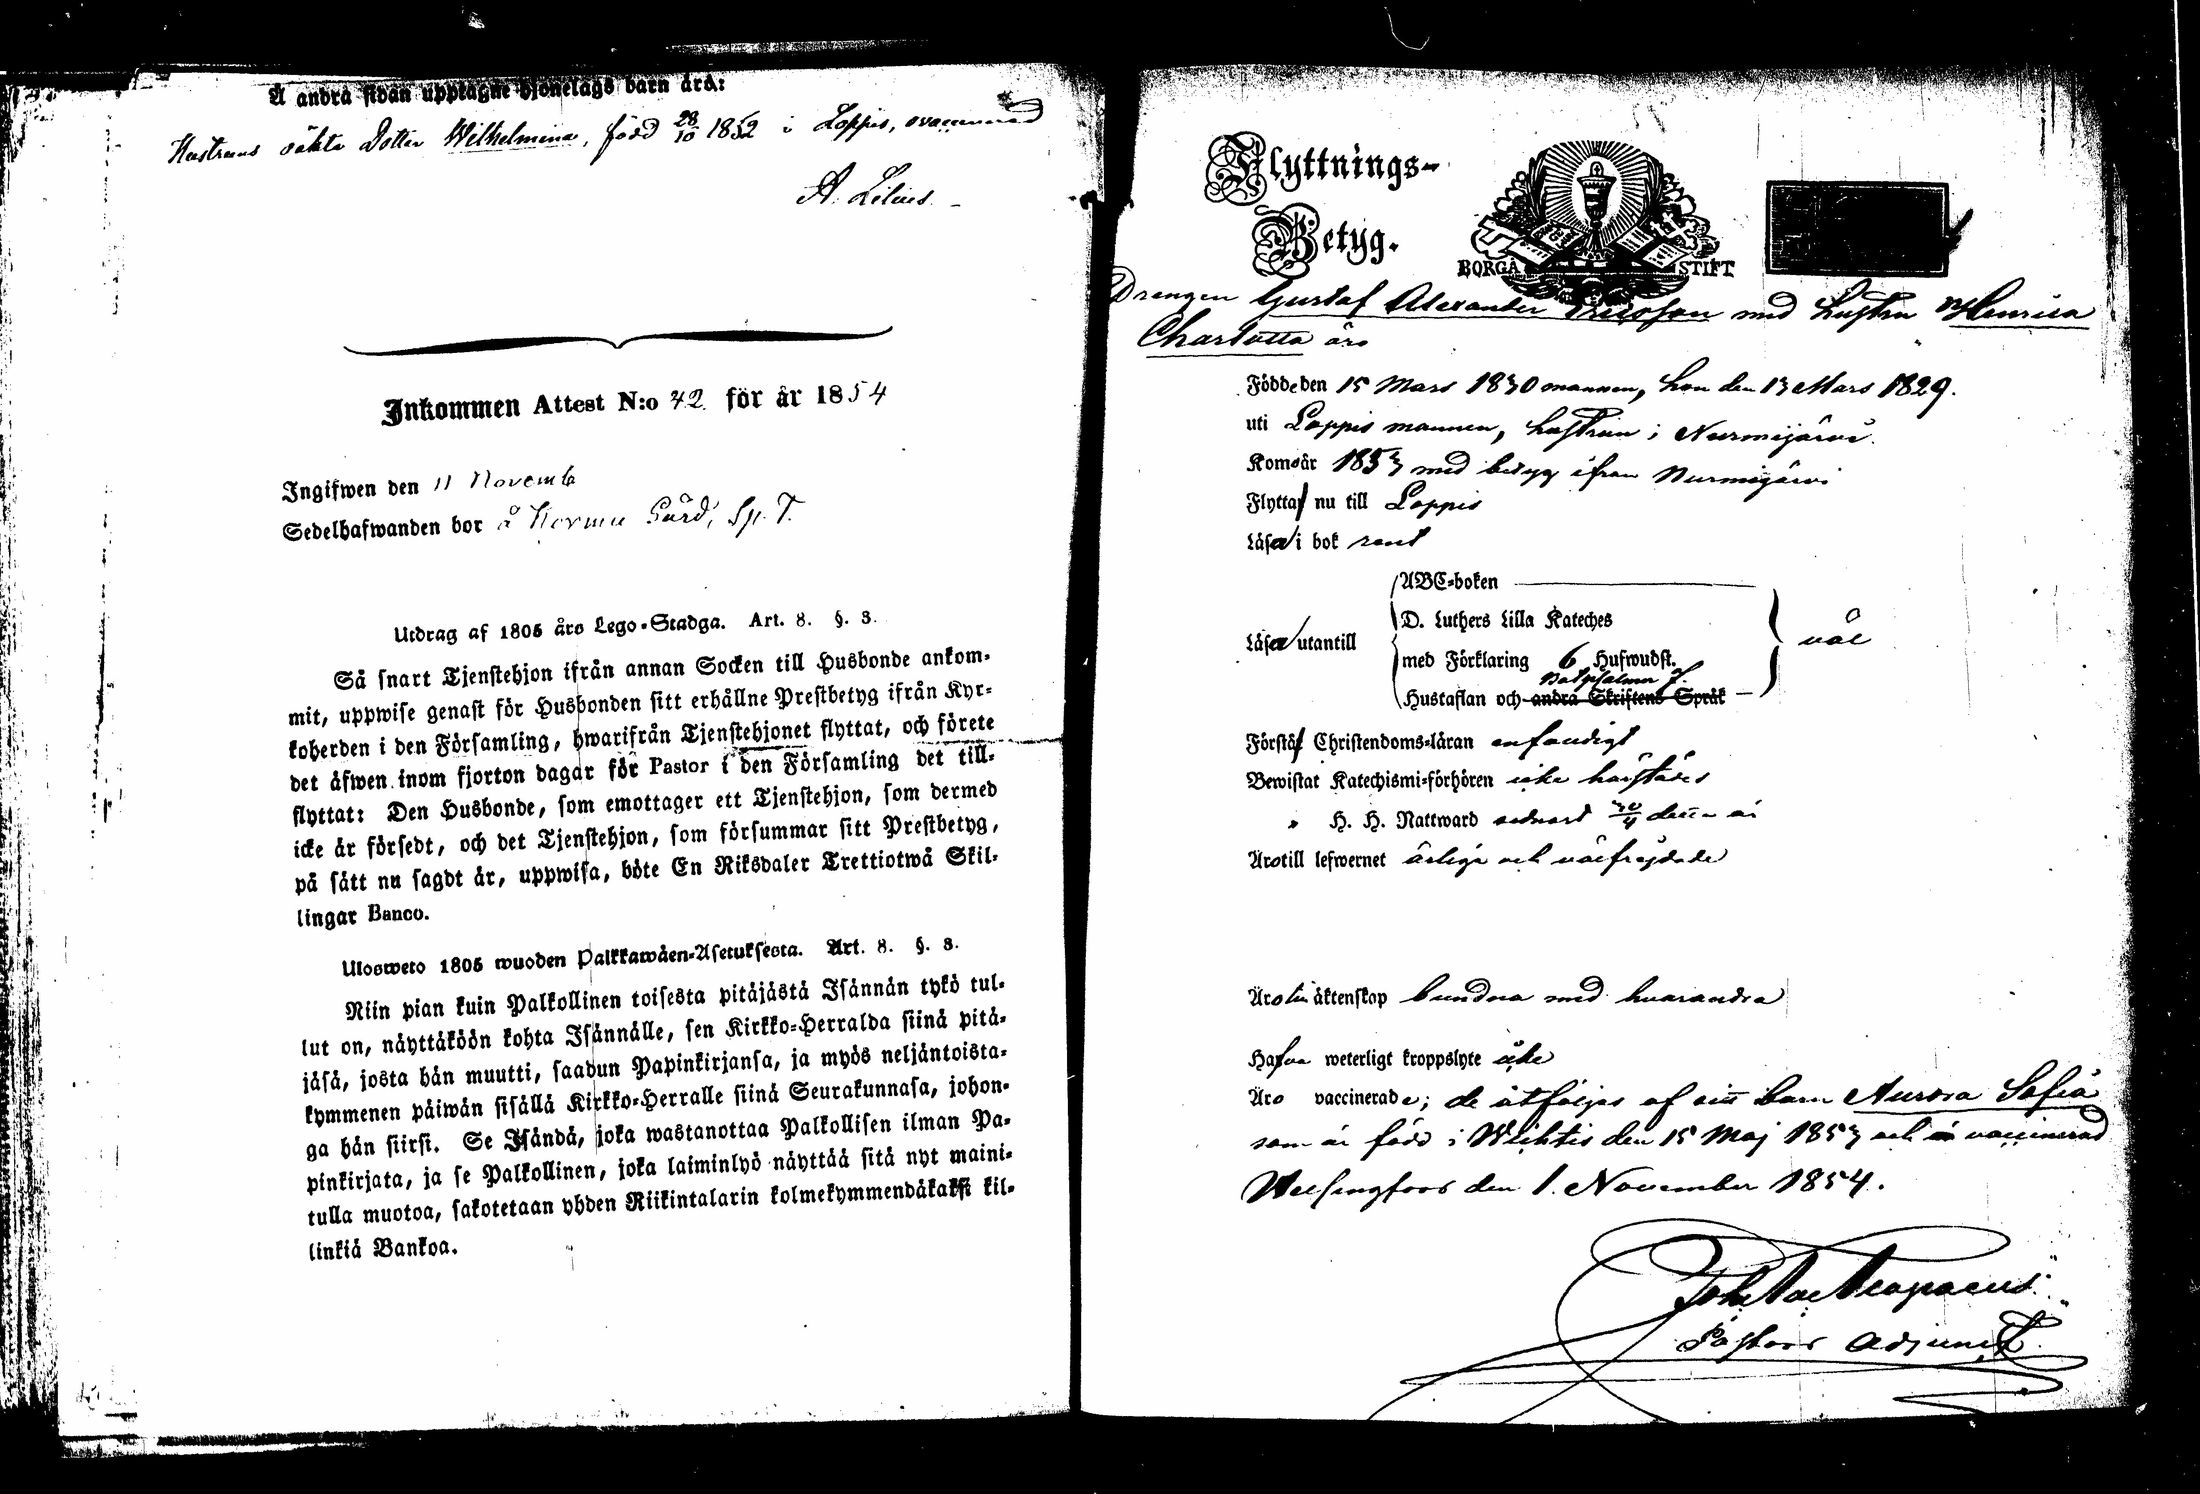 Å andra sidan upptagne hjonelags barn äro:
Hustruns oäkta Dotter Wilhelmina, född 28/10 1852 i Loppis, ovaccinerad
A. Lilius.
Inkommen Attest N:o 42. för år 1854
Ingifwen den 11 Novemb
Sedelhafwanden bor å Kormu Gård, Sp. T.
Utdrag af 1805 års Lego-Stadga. Art. 8. §. 3.
Så snart Tjenstehjon ifrån annan Socken till Husbonde ankom-
mit, uppwise genast för Husbonden sitt erhållne Prestbetyg ifrån Kyr-
koherden i den Församling, hwarifrån Tjenstehjonet flyttat, och förete
det äfwen inom fjorton dagar för Pastor i den Församling det till-
flyttat: Den Husbonde, som emottager ett Tjenstehjon, som dermed
icke är försedt, och det Tjenstehjon, som försummar sitt Prestbetyg,
på sätt nu sagdt är, uppwisa, böte En Riksdaler Trettiotwå Skil-
lingar Banco.
Ulosweto 1805 wuoden Palkkawäen-Asetuksesta. Art. 8. §. 3.
Niin pian kuin Palkollinen toisesta pitäjästä Isännän tykö tul-
lut on, näyttäköön kohta Isännälle, sen Kirkko-Herralda siinä pitä-
jäsä, josta hän muutti, saadun Papinkirjansa, ja myös neljäntoista-
kymmenen päiwän sisällä Kirkko-Herralle siinä Seurakunnasa, johon-
ga hän siirsi. Se Isändä, joka wastanottaa Palkollisen ilman Pa-
pinkirjata, ja se Palkollinen, joka laiminlyö näyttää sitä nyt maini-
tulla muotoa, sakotetaan yhden Riikintalarin kolmekymmendäkaksi kil-
linkiä Bankoa.
Flyttnings-
Betyg.
BORGÅ STIFT
Drengen Gustaf Alexander Ericsson med hustru Henrica
Charlotta äro
Födde den 15 Mars 1830 mannen, hon den 13 Mars 1829.
uti Loppis mannen, hustrun i Nurmijärvi.
Komo år 1853 med betyg ifrån Nurmijärvi
Flytta nu till Loppis
Läsa i bok rent
Läsa utantill
ABC-boken
D. Luthers Lilla Kateches
med Förklaring 6 Hufwudst.
Botpsalmer
Hustaflan och andra Skriftens Språk
väl
Förstå Christendoms-läran enfaldigt
Bewistat Katechismi-förhören icke härstädes
" H. H. Nattward sednast 30/4 detta år
Äro till lefwernet ärliga och välfrejdade
Äro till äktenskap bundna med hvarandra
Hafva weterligt kroppslyte icke
Äro vaccinerade; de åtföljas af sitt barn Aurora Sofia
som är född i Wichtis den 15 Maj 1853 och är vaccinerad
Helsingfors den 1. November 1854.
Pastors Adjunct.